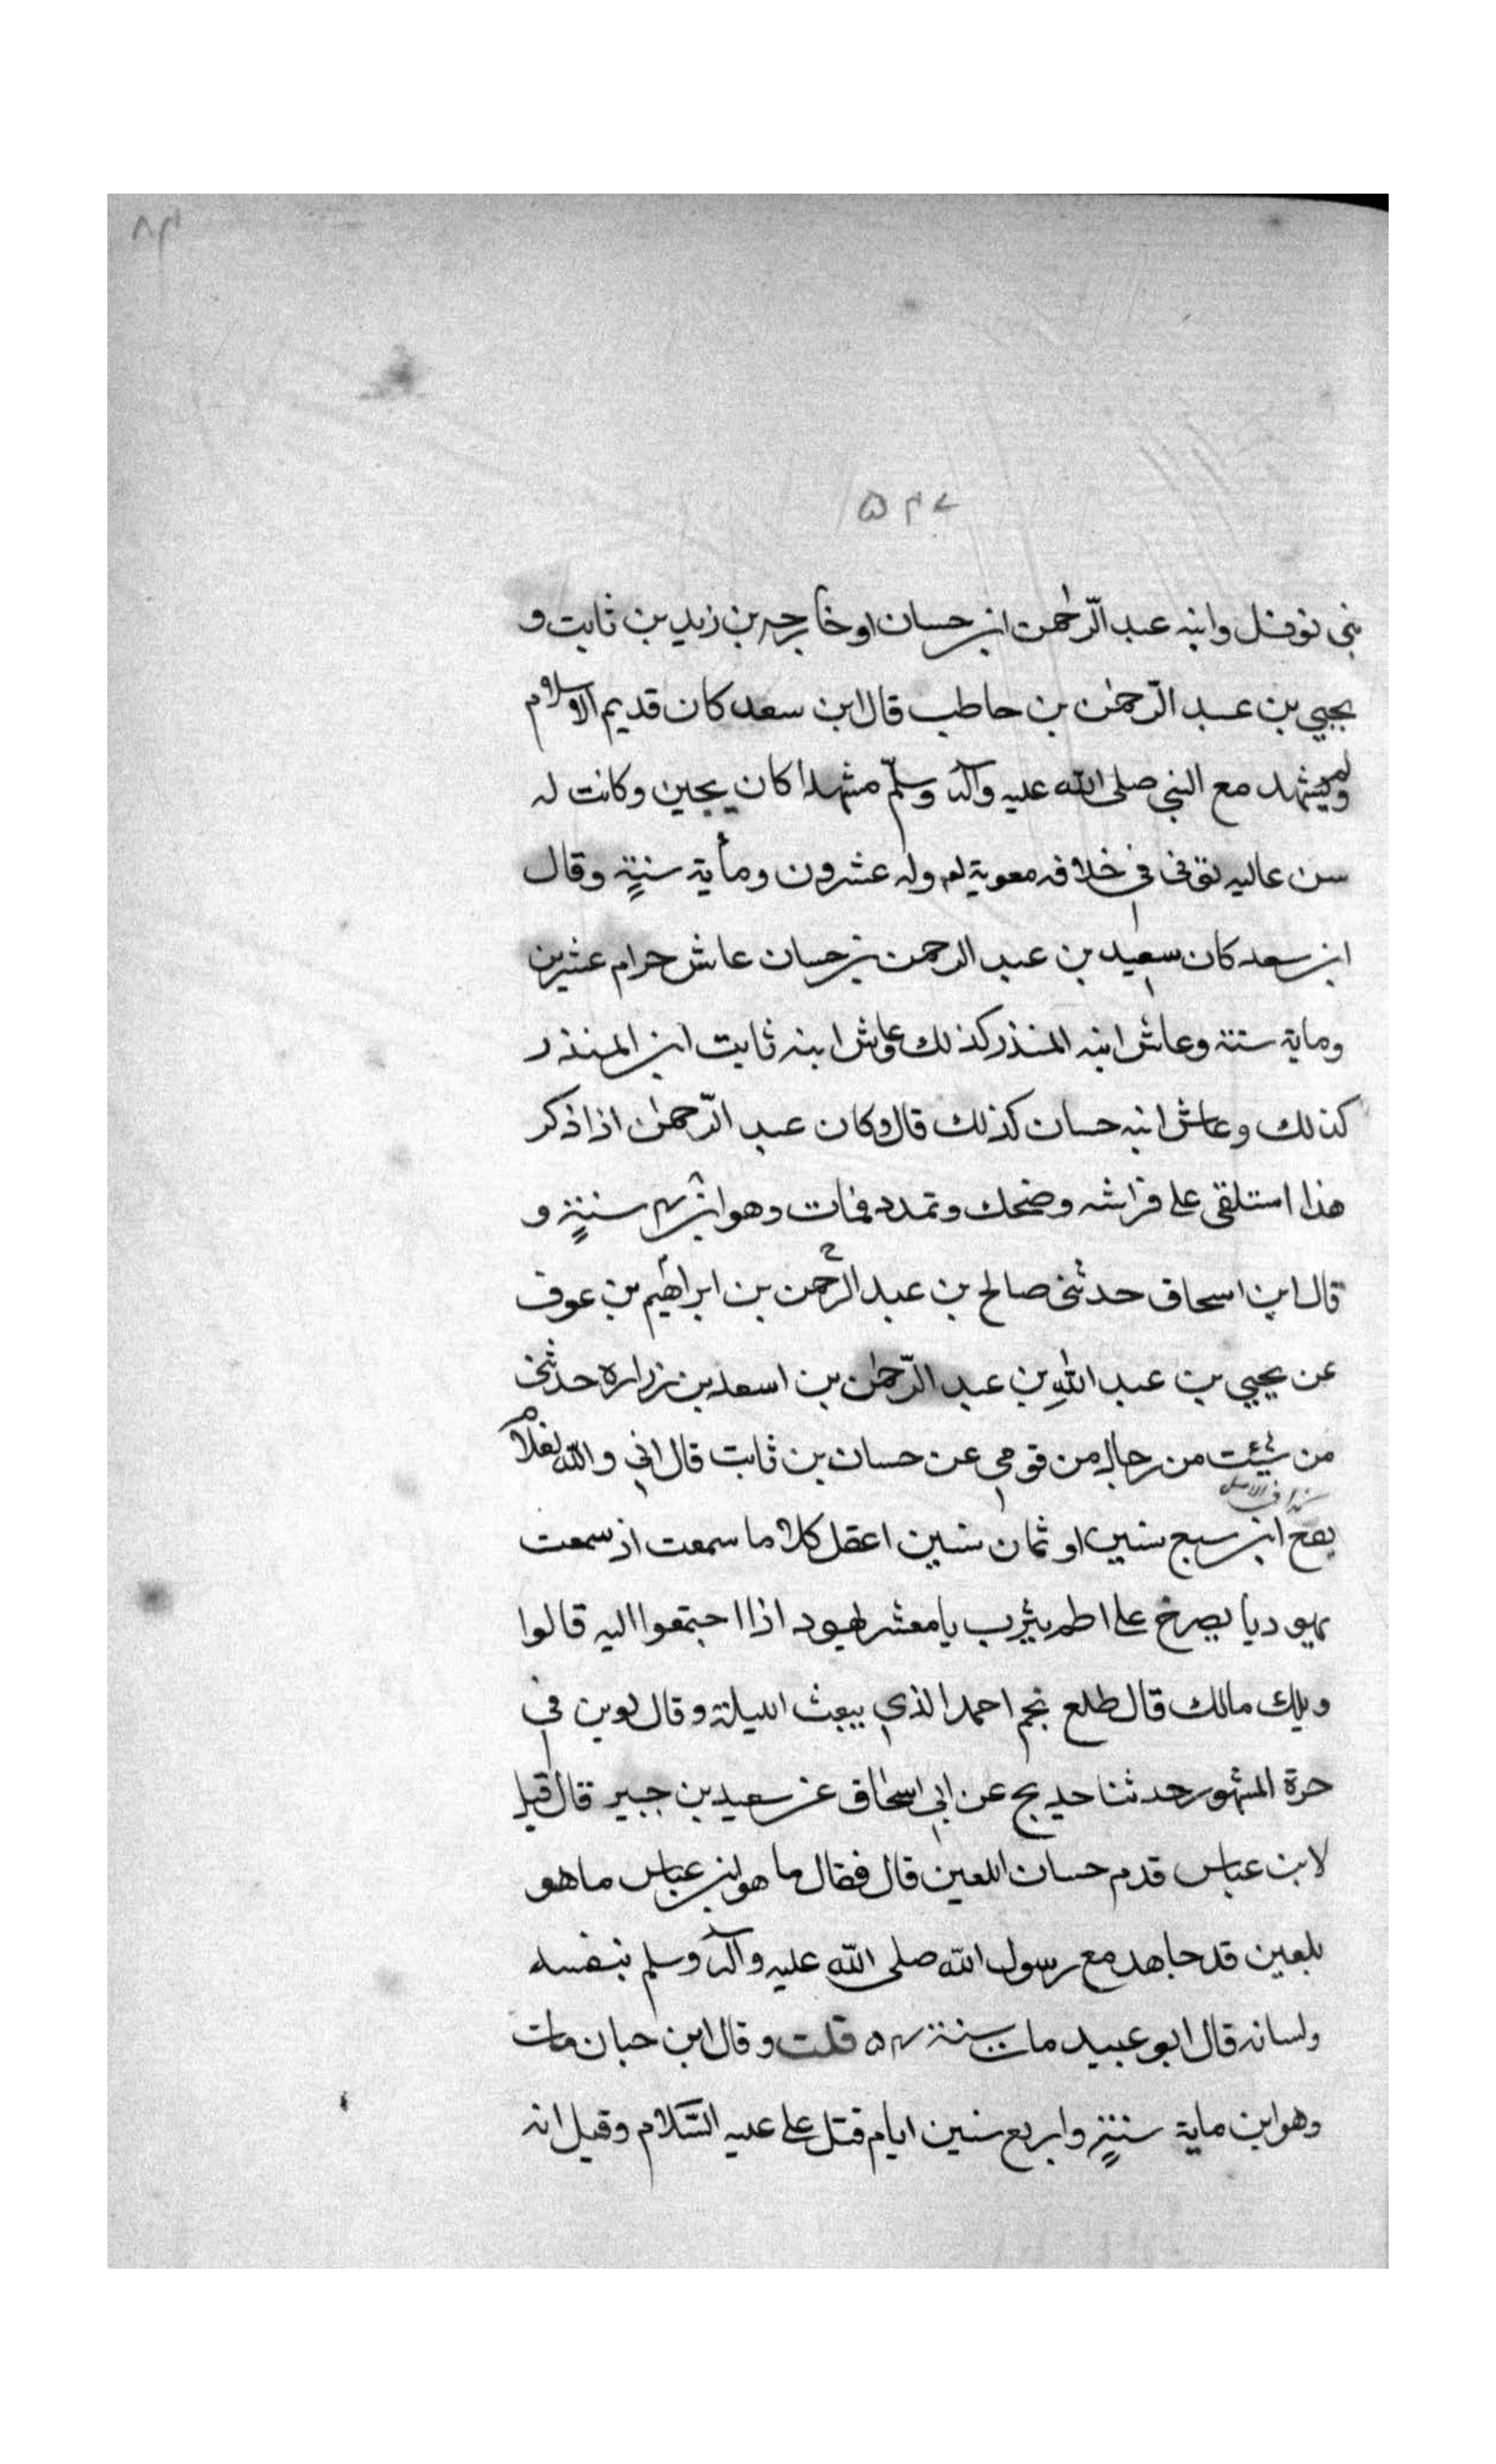 ۵۴۷
بنى نوفل وابنه عبد الرّحمٰن ابن حسان او خارجه بن زيد بن ثابت و
يحيي بن عبد الرّحمٰن بن حاطب قال ابن سعد كان قديم الاسلام
ولم يشهد مع النبي صلى الله عليه وآله وسلّم مشهدا كان يجبن وكانت له
سن عاليه توفى في خلافه معوية وله عشرون ومأية سنةٍ وقال
ابن سعد كان سعيد بن عبد الرحمن بن حسان عاش حرام عشرين
وماية سنة وعاش ابنه المنذر كذلك وعاش ابنه ثابت ابن المنذر
كذلك وعاش ابنه حسان كذلك قال وكان عبد الرّحمٰن اذا ذكر
هذا استلقى على فراشه وضحك وتمدد فمات وهو ابن ۴۸ سنةٍ و
قال ابن اسحاق حدثنى صالح بن عبد الرحمن بن ابراهيم بن عوف
عن يحيي بن عبد اللهِ بن عبد الرّحمٰن بن اسعد بن زراره حدثنى
من شئت من رجال من قومي عن حسان بن ثابت قال اني والله لغلام
كذا في الاصل
يفع ابن سبع سنين او ثمان سنين اعقل كلاما سمعت اذ سمعت
يهوديا يصرخ على اطم يثرب يا معشر يهود اذا اجتمعوا اليه قالوا
ويلك مالك قال طلع نجم احمد الذي يبعث الليلة وقال لوين في
حرة المشهور حدثنا حديج عن ابي اسحاق عن سعيد بن جبير قال قيل
لابن عباس قدم حسان اللعين قال فقال ما هو ابن عباس ما هو
بلعين قد جاهد مع رسول الله صلى الله عليه وآله وسلم بنفسه
ولسانه قال ابو عبيد مات سنة ۵۴ قلت وقال ابن حبان مات
وهو ابن ماية سنةٍ واربع سنين ايام قتل على عليه السّلام وقيل انه